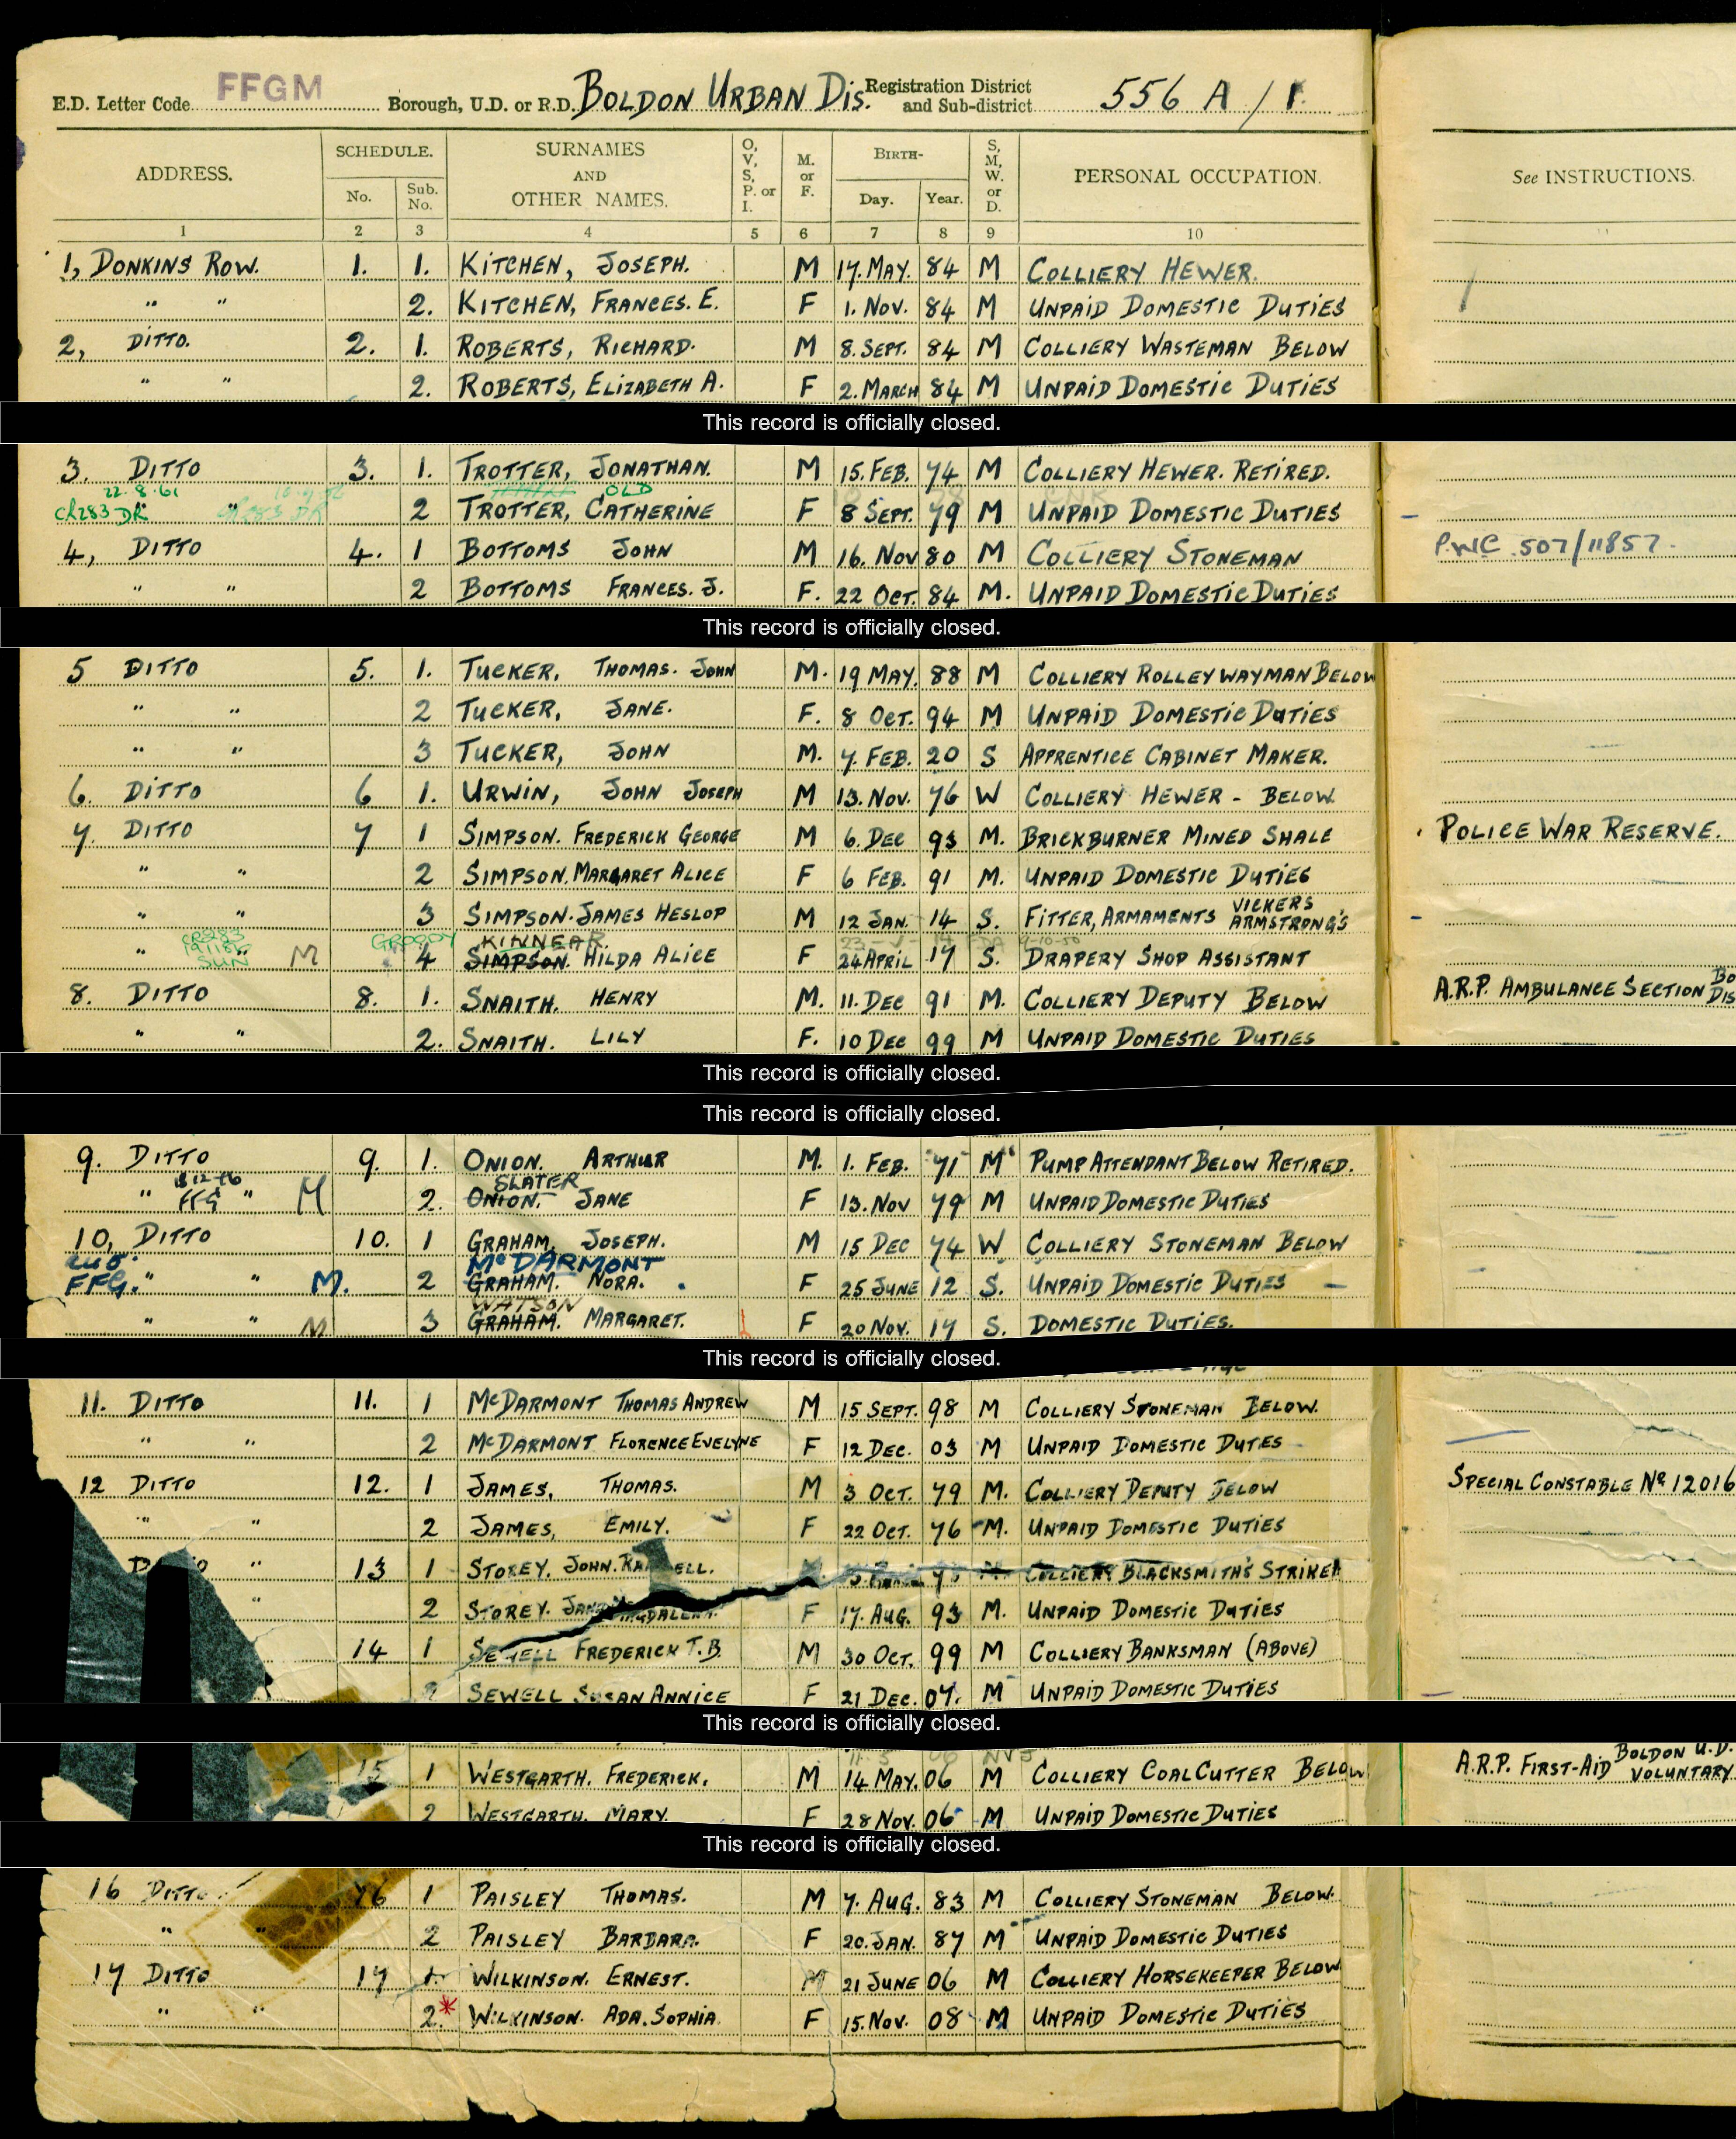 E.D. Letter Code FFGM Borough, U.D. or R.D. BOLDON URBAN DIS. Registration District and Sub-district 556 A / 1.
ADDRESS. SCHEDULE. No. Sub. No. SURNAMES AND OTHER NAMES. O, V, S, P. or I. M. or F. BIRTH- Day. Year. S, M, W. or D. PERSONAL OCCUPATION. See INSTRUCTIONS.
1 2 3 4 5 6 7 8 9 10 11
1, DONKINS ROW. 1. 1. KITCHEN, JOSEPH. M 17. MAY. 84 M COLLIERY HEWER.
" " 2. KITCHEN, FRANCES. E. F 1. NOV. 84 M UNPAID DOMESTIC DUTIES
2, DITTO. 2. 1. ROBERTS, RICHARD. M 8. SEPT. 84 M COLLIERY WASTEMAN BELOW
" " 2. ROBERTS, ELIZABETH A. F 2. MARCH 84 M UNPAID DOMESTIC DUTIES
This record is officially closed.
3. DITTO 3. 1. TROTTER, JONATHAN. M 15. FEB. 74 M COLLIERY HEWER. RETIRED.
22.8.61 OLD
CR283 DR " CR283 DR 2 TROTTER, CATHERINE F 8 SEPT. 79 M UNPAID DOMESTIC DUTIES
4, DITTO 4. 1 BOTTOMS JOHN M 16. NOV 80 M COLLIERY STONEMAN P.WC 507/11857.
" " 2 BOTTOMS FRANCES. J. F. 22 OCT. 84 M. UNPAID DOMESTIC DUTIES
This record is officially closed.
5 DITTO 5. 1. TUCKER, THOMAS. JOHN M. 19 MAY. 88 M COLLIERY ROLLEYWAYMAN BELOW
" " 2 TUCKER, JANE. F. 8 OCT. 94 M UNPAID DOMESTIC DUTIES
" " 3 TUCKER, JOHN M. 7. FEB. 20 S APPRENTICE CABINET MAKER.
6. DITTO 6 1. URWIN, JOHN JOSEPH M 13. NOV. 76 W COLLIERY HEWER - BELOW.
7. DITTO 7 1 SIMPSON. FREDERICK GEORGE M 6. DEC 93 M. BRICKBURNER MINED SHALE POLICE WAR RESERVE.
" " 2 SIMPSON. MARGARET ALICE F 6 FEB. 91 M. UNPAID DOMESTIC DUTIES
" " 3 SIMPSON. JAMES HESLOP M 12 JAN. 14 S. FITTER, ARMAMENTS VICKERS ARMSTRONG'S
CR283 SUN GROGGY KINNEAR
" M 4 SIMPSON. HILDA ALICE F 24 APRIL 17 S. DRAPERY SHOP ASSISTANT
8. DITTO 8. 1. SNAITH. HENRY M. 11. DEC 91 M. COLLIERY DEPUTY BELOW A.R.P. AMBULANCE SECTION BO DIS
" " 2. SNAITH. LILY F. 10 DEC 99 M UNPAID DOMESTIC DUTIES
This record is officially closed.
This record is officially closed.
9. DITTO 9. 1. ONION. ARTHUR M. 1. FEB. 71 M PUMP ATTENDANT BELOW RETIRED.
SLATER
" FFG " M 2. ONION. JANE F 13. NOV 79 M UNPAID DOMESTIC DUTIES
10, DITTO 10. 1 GRAHAM, JOSEPH. M 15 DEC 74 W COLLIERY STONEMAN BELOW
McDARMONT
FFG. " " M. 2 GRAHAM. NORA. F 25 JUNE 12 S. UNPAID DOMESTIC DUTIES
WATSON
" " M 3 GRAHAM. MARGARET. F 20 NOV. 17 S. DOMESTIC DUTIES.
This record is officially closed.
11. DITTO 11. 1 McDARMONT THOMAS ANDREW M 15 SEPT. 98 M COLLIERY STONEMAN BELOW.
" " 2 McDARMONT FLORENCE EVELYNE F 12 DEC. 03 M UNPAID DOMESTIC DUTES
12 DITTO 12. 1 JAMES, THOMAS. M 3 OCT. 79 M. COLLIERY DEPUTY BELOW SPECIAL CONSTABLE No 12016
" " 2 JAMES, EMILY. F 22 OCT. 76 M. UNPAID DOMESTIC DUTIES
" 13 1 STOREY. JOHN. COLLIERY BLACKSMITH'S STRIKER
" 2 STOREY. F 17. AUG. 93 M. UNPAID DOMESTIC DUTIES
14 1 SEWELL FREDERICK T. B. M 30 OCT. 99 M COLLIERY BANKSMAN (ABOVE)
2 SEWELL SUSAN ANNICE F 21 DEC. 07. M UNPAID DOMESTIC DUTIES
This record is officially closed.
15 1 WESTGARTH. FREDERICK. M 14 MAY. 06 M COLLIERY COALCUTTER BELOW A.R.P. FIRST-AID BOLDON U.D. VOLUNTARY.
2 WESTGARTH. MARY. F 28 NOV. 06 M UNPAID DOMESTIC DUTIES
This record is officially closed.
16 DITTO 16 1 PAISLEY THOMAS. M 7. AUG. 83 M COLLIERY STONEMAN BELOW.
" " 2 PAISLEY BARBARA. F 20. JAN. 87 M UNPAID DOMESTIC DUTIES
17 DITTO 17 1. WILKINSON. ERNEST. M 21 JUNE 06 M COLLIERY HORSEKEEPER BELOW
" " 2.* WILKINSON. ADA. SOPHIA F 15. NOV. 08 M UNPAID DOMESTIC DUTIES